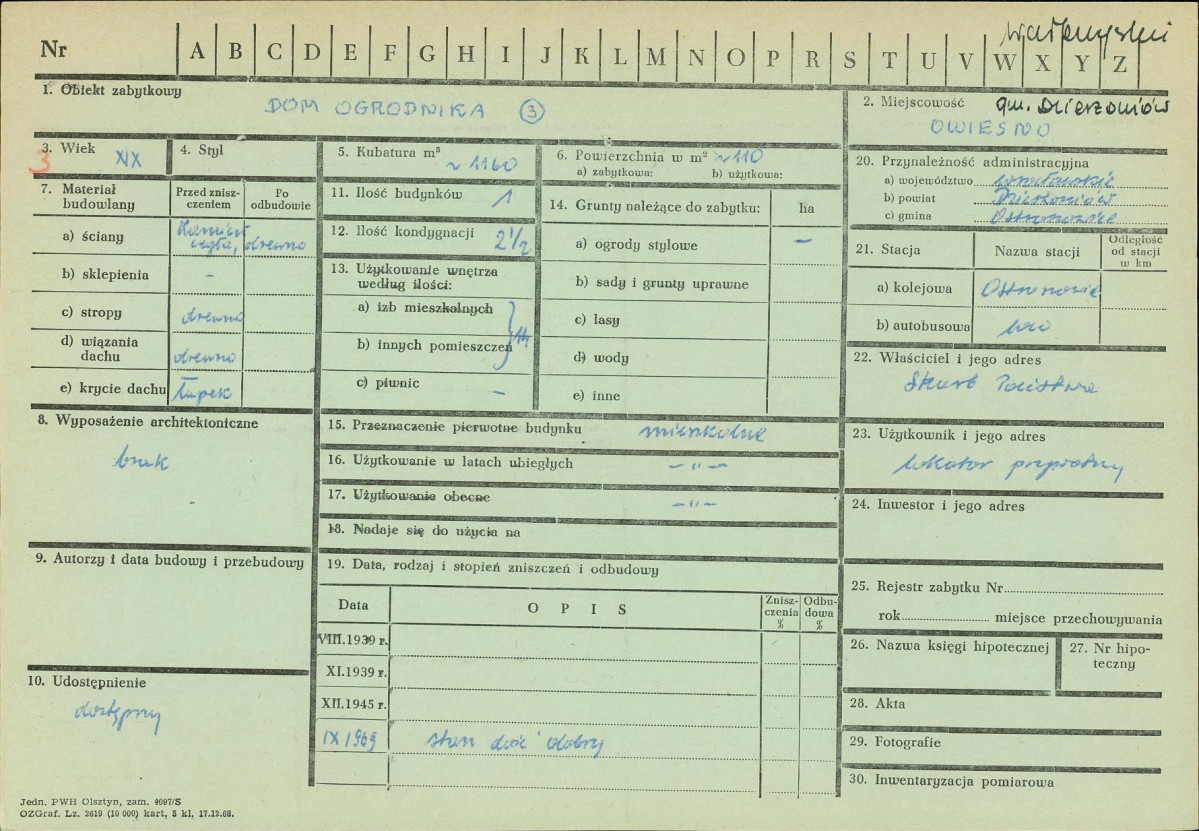 wałbrzyski
Nr A B C D E F G H I J K L M N O P R S T U V W X Y Z
1. Obiekt zabytkowy
DOM OGRODNIKA ③
2. Miejscowość gm. Dzierżoniów
OWIESNO
3. Wiek XIX
3
4. Styl
5. Kubatura m³ ~ 1160
6. Powierzchnia w m² ~ 110
a) zabytkowa: b) użytkowa:
7. Materiał budowlany
Przed zniszczeniem
Po odbudowie
a) ściany Kamień cegła, drewno
b) sklepienia -
c) stropy drewno
d) wiązania dachu drewno
e) krycie dachu łupek
8. Wyposażenie architektoniczne
brak
9. Autorzy i data budowy i przebudowy
10. Udostępnienie
dostępny
11. Ilość budynków 1
12. Ilość kondygnacji 2 1/2
13. Użytkowanie wnętrza według ilości:
a) izb mieszkalnych
b) innych pomieszczeń
c) piwnic -
14. Grunty należące do zabytku: ha
a) ogrody stylowe -
b) sady i grunty uprawne
c) lasy
d) wody
e) inne
15. Przeznaczenie pierwotne budynku mieszkalne
16. Użytkowanie w latach ubiegłych - " -
17. Użytkowanie obecne - " -
18. Nadaje się do użycia na
19. Data, rodzaj i stopień zniszczeń i odbudowy
Data OPIS Zniszczenia % Odbudowa %
VIII.1939 r.
XI.1939 r.
XII.1945 r.
IX 1969 stan dość dobry
20. Przynależność administracyjna
a) województwo wrocławskie
b) powiat Dzierżoniów
c) gmina Ostroszowice
21. Stacja Nazwa stacji Odległość od stacji w km
a) kolejowa
b) autobusowa
22. Właściciel i jego adres
Skarb Państwa
23. Użytkownik i jego adres
lokator prywatny
24. Inwestor i jego adres
25. Rejestr zabytku Nr
rok miejsce przechowywania
26. Nazwa księgi hipotecznej
27. Nr hipoteczny
28. Akta
29. Fotografie
30. Inwentaryzacja pomiarowa
Jedn. PWH Olsztyn, zam. 4097/S
OZGraf. Lz. 2619 (10 000) kart, 5 kl, 17.12.68.